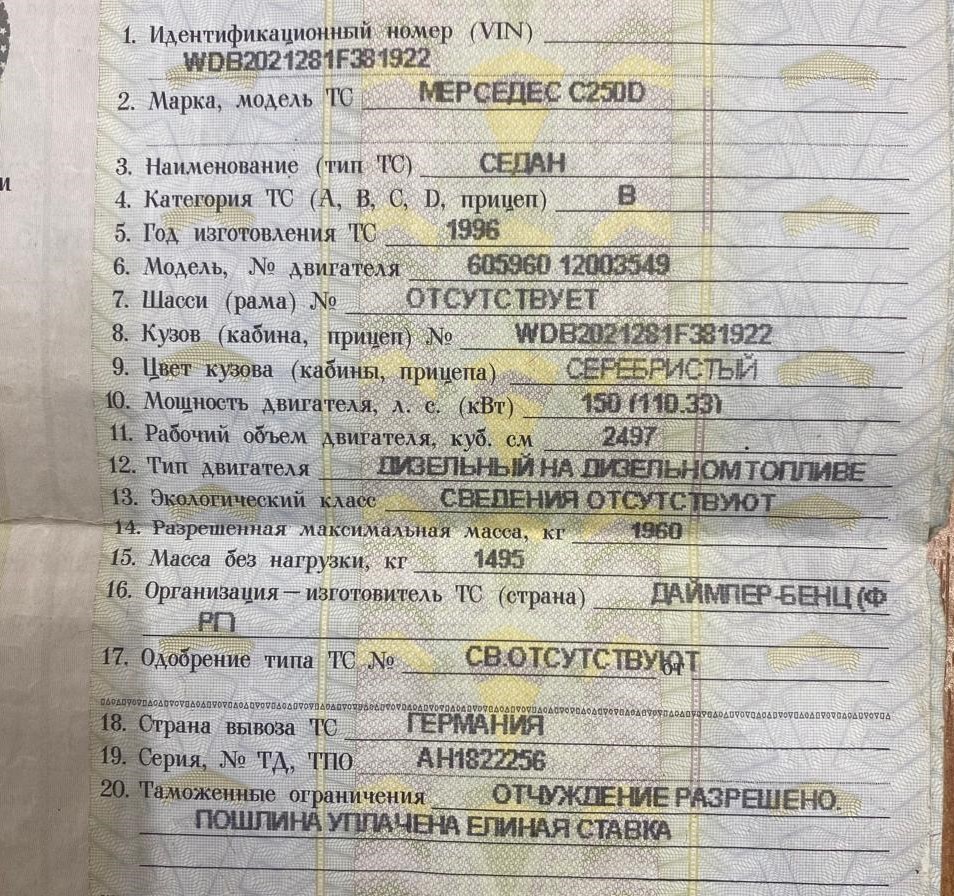 1. Идентификационный номер (VIN)
WDB2021281F381922
2. Марка, модель ТС МЕРСЕДЕС С250D
3. Наименование (тип ТС) СЕДАН
и
4. Категория ТС (А, В, С, D, прицеп) В
5. Год изготовления ТС 1996
6. Модель, № двигателя 605960 12003549
7. Шасси (рама) № ОТСУТСТВУЕТ
8. Кузов (кабина, прицеп) № WDB2021281F381922
9. Цвет кузова (кабины, прицепа) СЕРЕБРИСТЫЙ
10. Мощность двигателя, л. с. (кВт) 150 (110.33)
11. Рабочий объем двигателя, куб. см 2497
12. Тип двигателя ДИЗЕЛЬНЫЙ НА ДИЗЕЛЬНОМ ТОПЛИВЕ
13. Экологический класс СВЕДЕНИЯ ОТСУТСТВУЮТ
14. Разрешенная максимальная масса, кг 1960
15. Масса без нагрузки, кг 1495
16. Организация – изготовитель ТС (страна) ДАЙМЛЕР-БЕНЦ (Ф
РГ)
17. Одобрение типа ТС № СВ.ОТСУТСТВУЮТ от
18. Страна вывоза ТС ГЕРМАНИЯ
19. Серия, № ТД, ТПО АН1822256
20. Таможенные ограничения ОТЧУЖДЕНИЕ РАЗРЕШЕНО.
ПОШЛИНА УПЛАЧЕНА ЕДИНАЯ СТАВКА